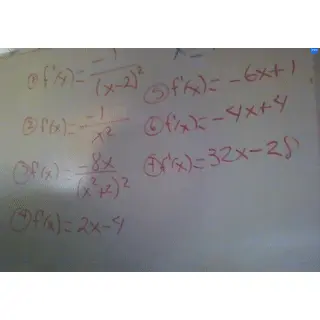 ① f'(x) = -1/(x-2)²
② f'(x) = -1/x²
③ f'(x) = -8x/(x²+2)²
④ f'(x) = 2x-4
⑤ f'(x) = -6x+1
⑥ f'(x) = -4x+4
⑦ f'(x) = 32x-28